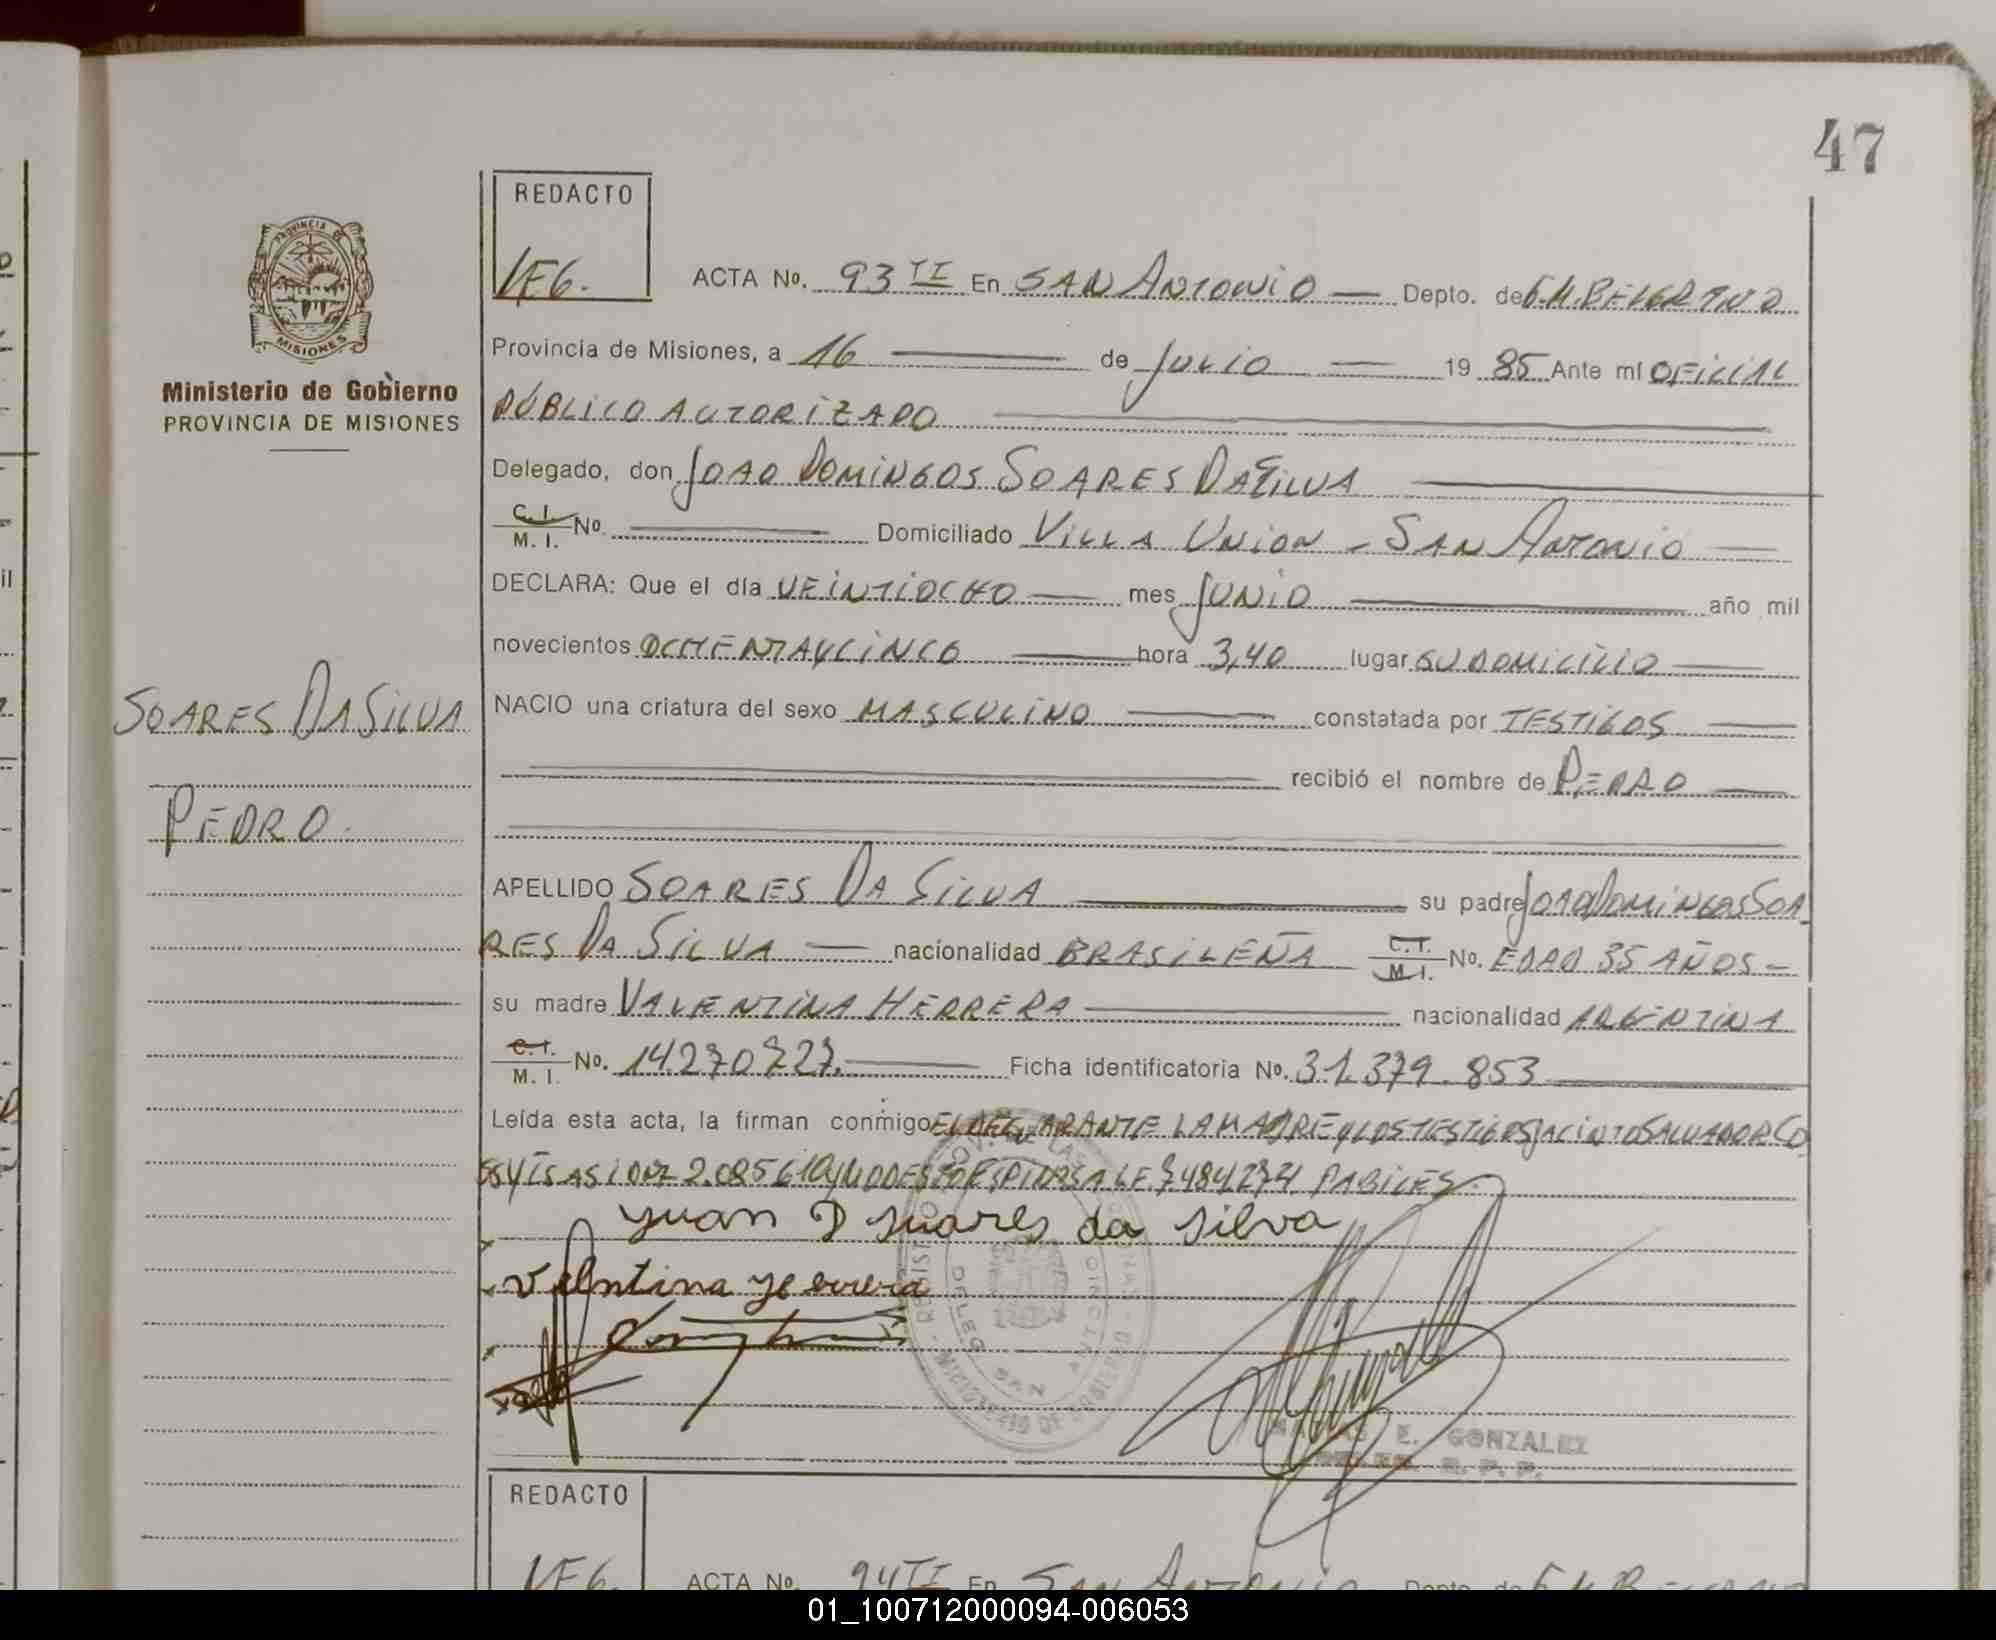 47
REDACTO
ACTA No. 93 TI En SAN ANTONIO Depto. de G.M. BELGRANO
PROVINCIA DE MISIONES
Provincia de Misiones, a 16 de JULIO 1985 Ante mí OFICIAL
Ministerio de Gobierno
PROVINCIA DE MISIONES
PÚBLICO AUTORIZADO
Delegado, don JOAO DOMINGOS SOARES DA SILVA
C. I.
M. I. No. Domiciliado VILLA UNION - SAN ANTONIO
DECLARA: Que el día VEINTIOCHO mes JUNIO año mil
novecientos OCHENTAYCINCO hora 3,40 lugar SU DOMICILIO
SOARES DA SILVA
NACIO una criatura del sexo MASCULINO constatada por TESTIGOS
recibió el nombre de PEDRO
PEDRO.
APELLIDO SOARES DA SILVA su padre JOAO DOMINGOS SOA
RES DA SILVA nacionalidad BRASILEÑA C. I. M. I. No. EDAD 35 AÑOS -
su madre VALENTINA HERRERA nacionalidad ARGENTINA
C. I.
M. I. No. 14.270727. Ficha identificatoria No. 31.379.853
Leída esta acta, la firman conmigo EL DECLARANTE LA MADRE Y LOS TESTIGOS JACINTO SALVADOR
2.085610 Y MODESTO ESPINOSA LE 7484274
Juan D Suares da Silva
Valentina Herrera
DELEG. SAN ANTONIO
E. GONZALEZ
REDACTO
ACTA No. 94 TI En SAN ANTONIO Depto. de G.M. BELGRANO
01_100712000094-006053